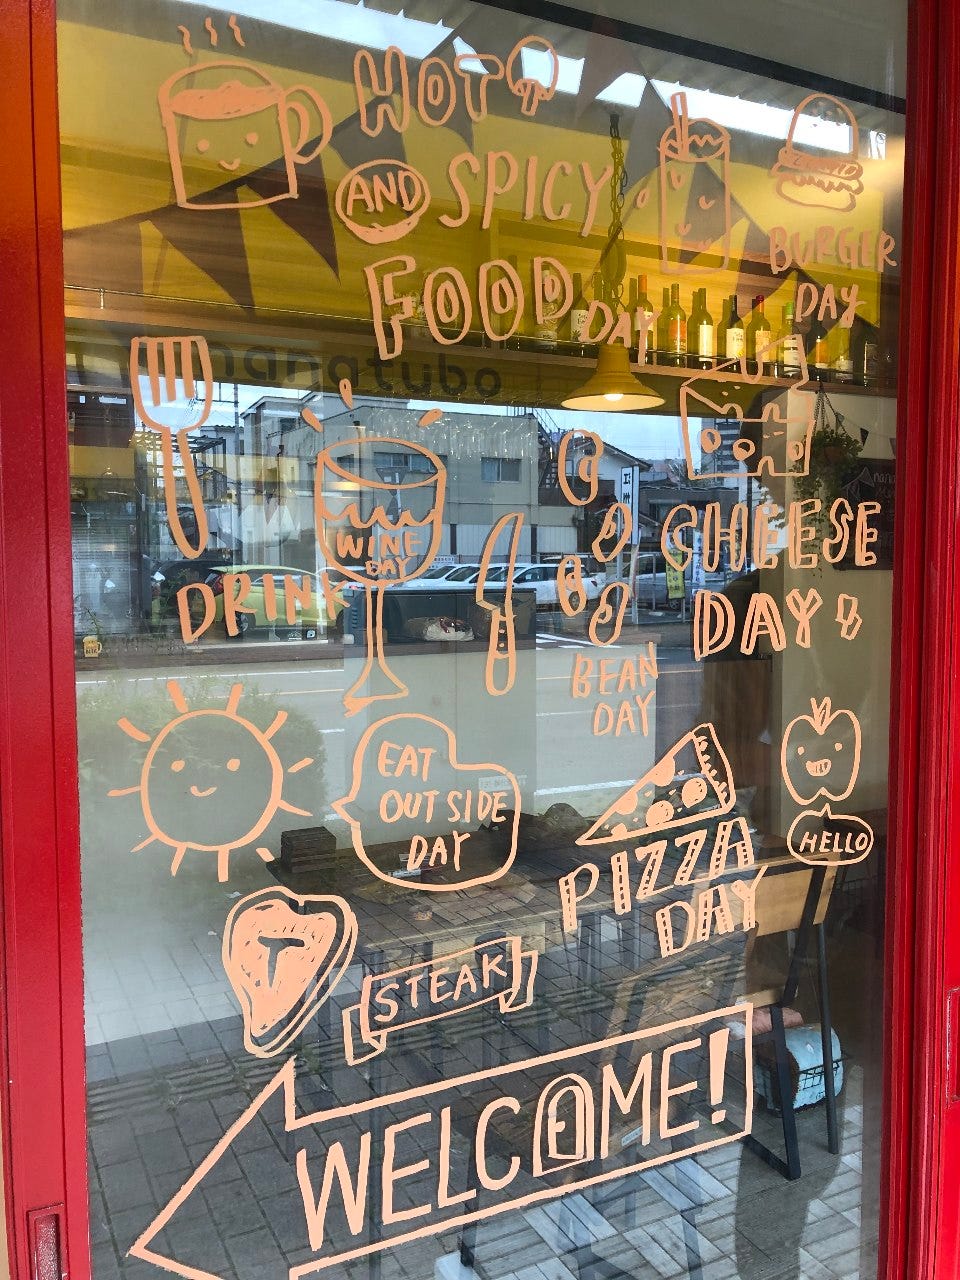 HOT
AND SPICY
FOOD DAY
BURGER
DAY
nanatubo
WINE
DAY
DRINK
CHEESE
DAY
BEAN
DAY
EAT
OUT SIDE
DAY
HELLO
PIZZA
DAY
T
STEAK
WELCOME!